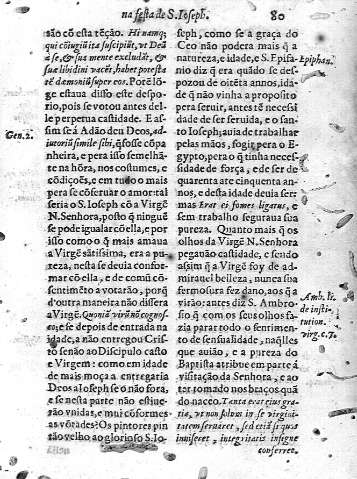 na festa de S. Ioseph. 80
são cõ esta tẽção. Hi namq;
qui cõiugiũ ita suscipiũt, vt Deũ
à se, & sua mente excludãt, &
suæ libidini vacẽt, habet potestã
tẽ dæmoniũ super eos. Pore lõ-
ge estaua disso este despo-
rio, pois se votou antes del-
le perpetua castidade. E as-
sim seâ Adão deu Deos, ad-
iutoriũ simile sibi, q̃ fosse cõpa
nheira, e pera isso semelhã-
te na hõra, nos costumes, e
cõdiçoẽs, e em tudo o mais
pera se cõseruar o amor tal
seria o S. Ioseph cõ a Virgẽ
N. Senhora, posto q̃ ninguẽ
se pode igualar cõ ella, e por
isso como o q̃ mais amaua
a Virgẽ sãtissima, era a pu-
reza, nesta se deuia confor-
mar cõ ella, e de comũ cõ-
sentimẽto a votarão, porq̃
d'outra maneira não dissera
a Virgẽ. Quoniã virũ nõ cognos-
co, e se depois de entrada na
idade, a não entregou Cris-
to senão ao Discipulo casto
e Virgem: como em idade
de mais moça a entregaria
Deos a Ioseph se o não fora,
e se nesta parte não estiue-
rão vnidas, e mui cõformes
as võtades? Os pintores pin
tão velho ao glorioso S. Io-
Gen. 2.
seph, como se a graça do
Ceo não podera mais q̃ a
natureza, e idade, e S. Epifa-
nio diz q̃ era quãdo se des-
pozou de oitẽta annos, ida-
de q̃ não vinha a proposito
pera seruir, antes tẽ necessi
dade de ser seruida, e o san-
to Ioseph; auia de trabalhar
pelas mãos, fogir pera o E-
gypto, pera o q̃ tinha neces-
sidade de força, e de ser de
quarenta atè cincuenta an-
nos, e desta idade deuia ser
mas Erat ei fomes ligatus, e
sem trabalho seguraua sua
pureza. Quanto mais q̃ os
olhos da Virgẽ N. Senhora
pegauão castidade, e sendo
assim q̃ a Virgẽ foy de ad-
mirauel belleza, nunca sua
fermosura fez dano, aos q̃ a
virão: antes diz S. Ambro-
sio q̃ com os seus olhos fa-
zia parar todo o sentimen-
to de sensualidade, naq̃lles
que auião, e a pureza do
Baptista atribue em parte á
visitação da Senhora, e ao
ter tomado nos braços quã
do naceo. Tanta erat eius gra-
tia, vt non solum in se virgini-
tatem seruaret, sed etiã si quos
inuiseret, integritatis insigne
conferret.
Epiphan.
Amb. li.
de insti-
tution.
virg. c. 7.